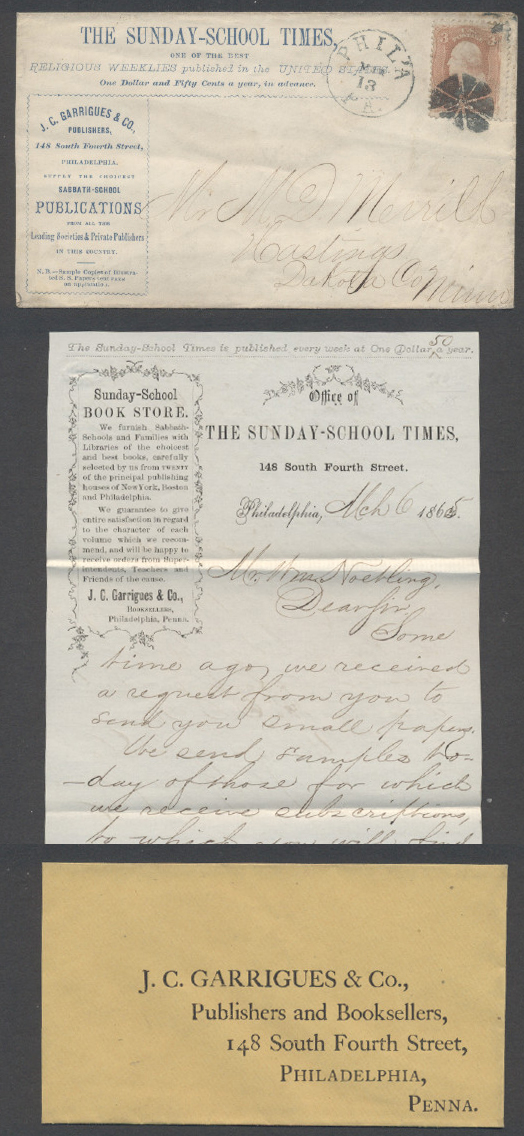 THE SUNDAY-SCHOOL TIMES,
ONE OF THE BEST
RELIGIOUS WEEKLIES published in the UNITED STATES.
One Dollar and Fifty Cents a year, in advance.
PHILA
13
PA.
3 3
J. C. GARRIGUES & CO.,
PUBLISHERS,
148 South Fourth Street,
PHILADELPHIA.
SUPPLY THE CHOICEST
SABBATH-SCHOOL
PUBLICATIONS
FROM ALL THE
Leading Societies & Private Publishers
IN THIS COUNTRY.
N. B.—Sample Copies of Illustra-
ted S. S. Papers sent FREE
on application.
Mr M D Merrill
Hastings
Dakota Co Minn
The Sunday-School Times is published every week at One Dollar 50 a year.
Sunday-School
BOOK STORE.
We furnish Sabbath-
Schools and Families with
Libraries of the choicest
and best books, carefully
selected by us from TWENTY
of the principal publishing
houses of New York, Boston
and Philadelphia.
We guarantee to give
entire satisfaction in regard
to the character of each
volume which we recom-
mend, and will be happy to
receive orders from Super-
intendents, Teachers and
Friends of the cause.
J. C. Garrigues & Co.,
BOOKSELLERS,
Philadelphia, Penna.
Office of
THE SUNDAY-SCHOOL TIMES,
148 South Fourth Street.
Philadelphia, Mch 6 1865.
Mr. Wm. Noetling,
Dear Sir,
Some
time ago, we received
a request from you to
send you small papers.
We send samples to-
day of those for which
we receive subscriptions,
to which you will find
J. C. GARRIGUES & Co.,
Publishers and Booksellers,
148 South Fourth Street,
PHILADELPHIA,
PENNA.